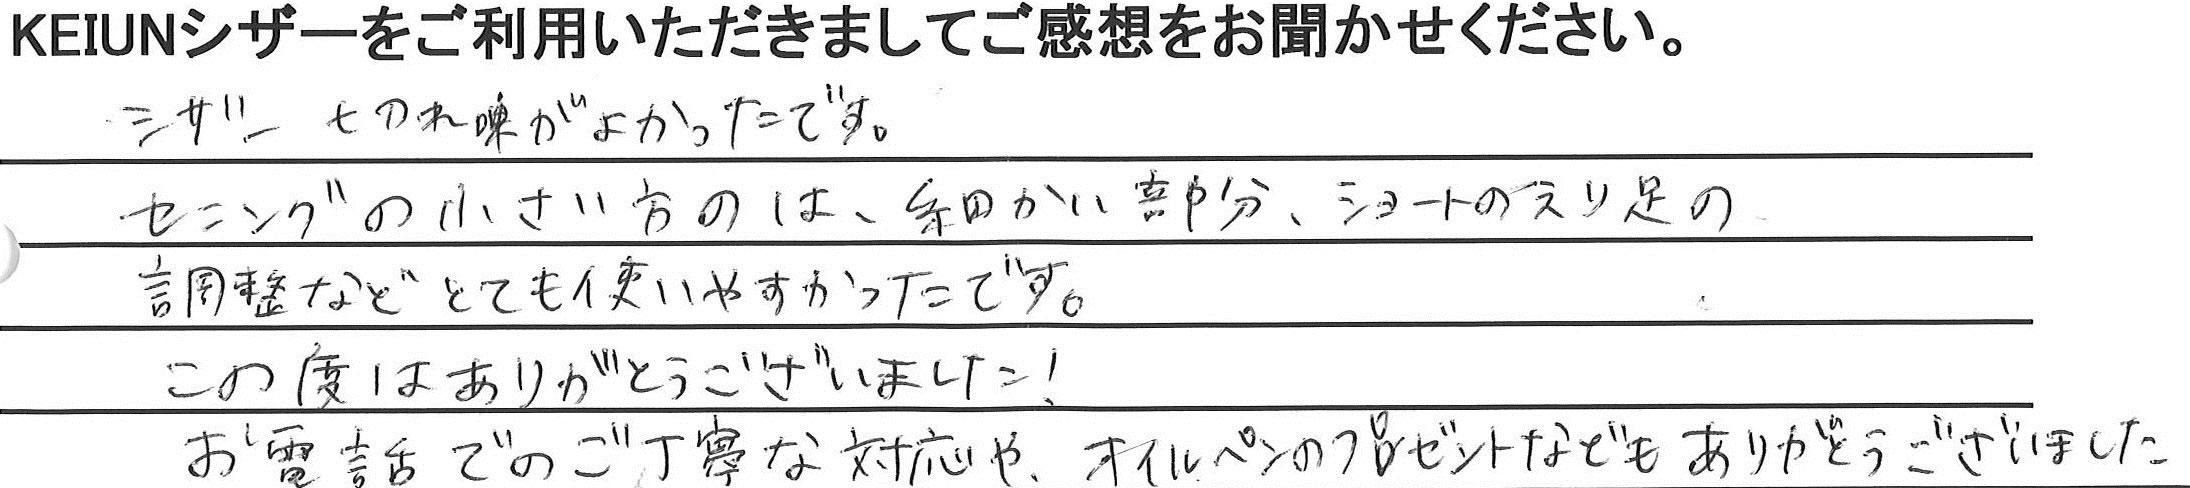 KEIUNシザーをご利用いただきましてご感想をお聞かせください。
シザー 切れ味がよかったです。
セニングの小さい方のは、細かい部分、ショートのえり足の
調整などとても使いやすかったです。
この度はありがとうございました！
お電話でのご丁寧な対応や、オイルペンのプレゼントなどもありがとうございました